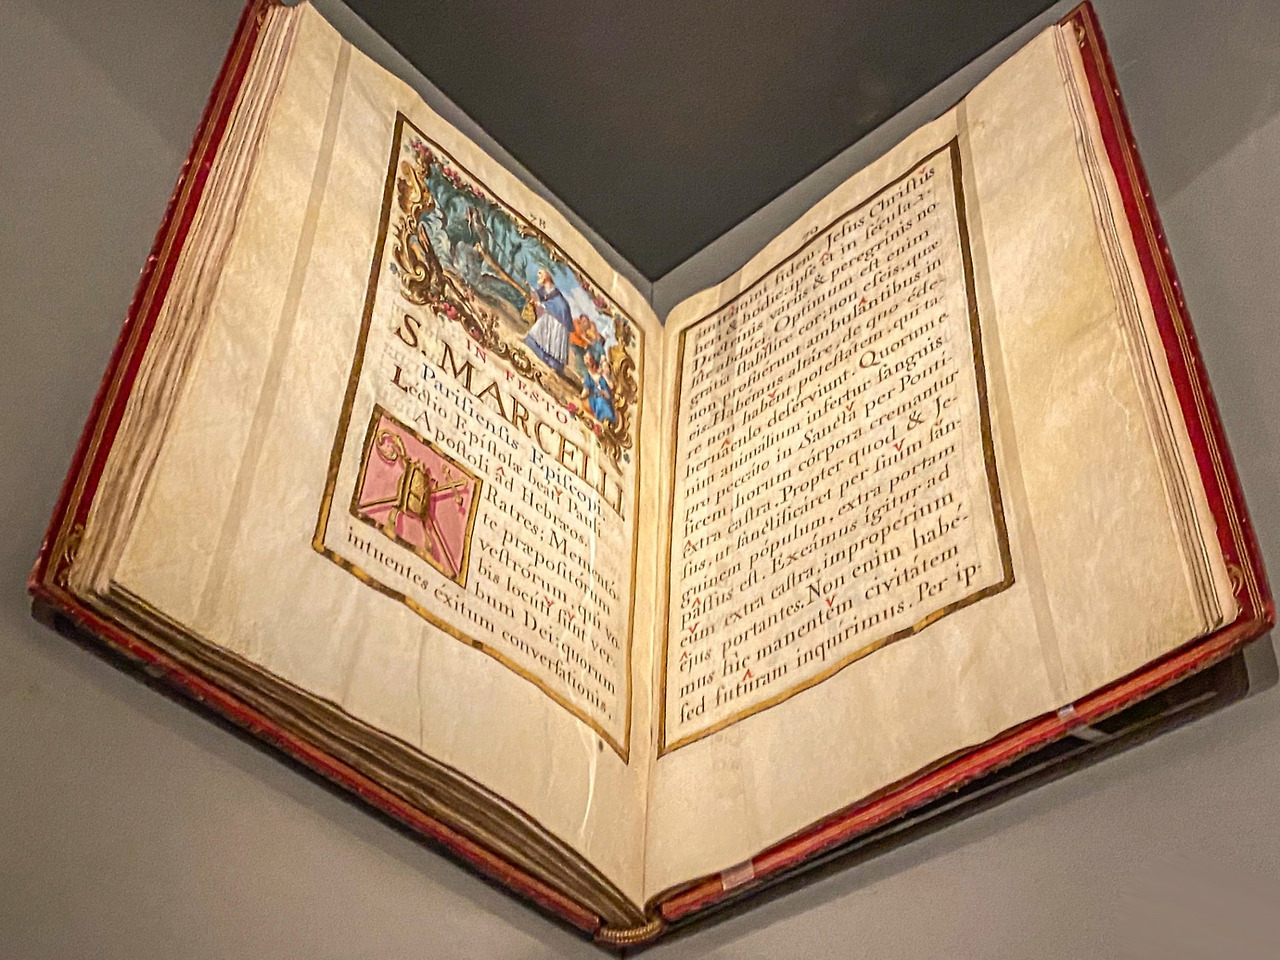 78
IN FESTO
S. MARCELLI
Pariſienſis Epiſcopi.
Lectio Epiſtolæ beati Pauli
Apoſtoli ad Hebræos.
Ratres; Mementó
te præpoſitórum
veſtrórum, qui vo-
bis locuti ſunt ver-
bum Dei: quorum
intuentes exitum converſationis,
79
fidem. Jeſus Chriſtus
& hodie: ipſe et in ſecula.
variis & peregrinis no
abduci. Optimum eſt enim
gratia ſtabilire cor; non eſcis, quæ
non profuerunt ambulántibus in
eis. Habémus altáre, de quo éde-
re non habent poteſtátem, qui ta-
bernáculo deſerviunt. Quorum e-
nim animálium infertur ſanguis
pro peccáto in Sancta per Ponti-
ficem horum córpora cremantur
extra caſtra. Propter quod & Je-
ſus, ut ſanctificáret per ſuum ſán-
guinem pópulum, extra portam
paſſus eſt. Exeámus igitur ad
eum extra caſtra, impropérium
ejus portantes. Non enim habé-
mus hic manentem civitátem
ſed futuram inquirimus. Per ip-